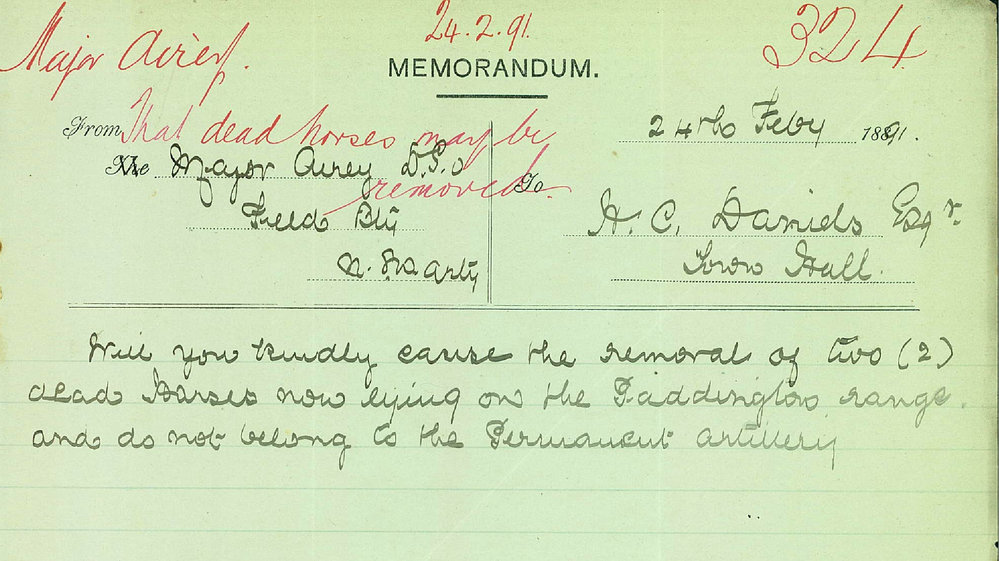 Major Airey.
24.2.91.
324
MEMORANDUM.
From
That dead horses may be
removed.
24th Feby 1891.
Major Airey D.S.O
To
Field Bty
H. C. Daniels Esqr.
N.S.W. Arty
Town Hall.
Will you kindly cause the removal of two (2)
dead Horses now lying on the Paddington range.
and do not belong to the Permanent Artillery